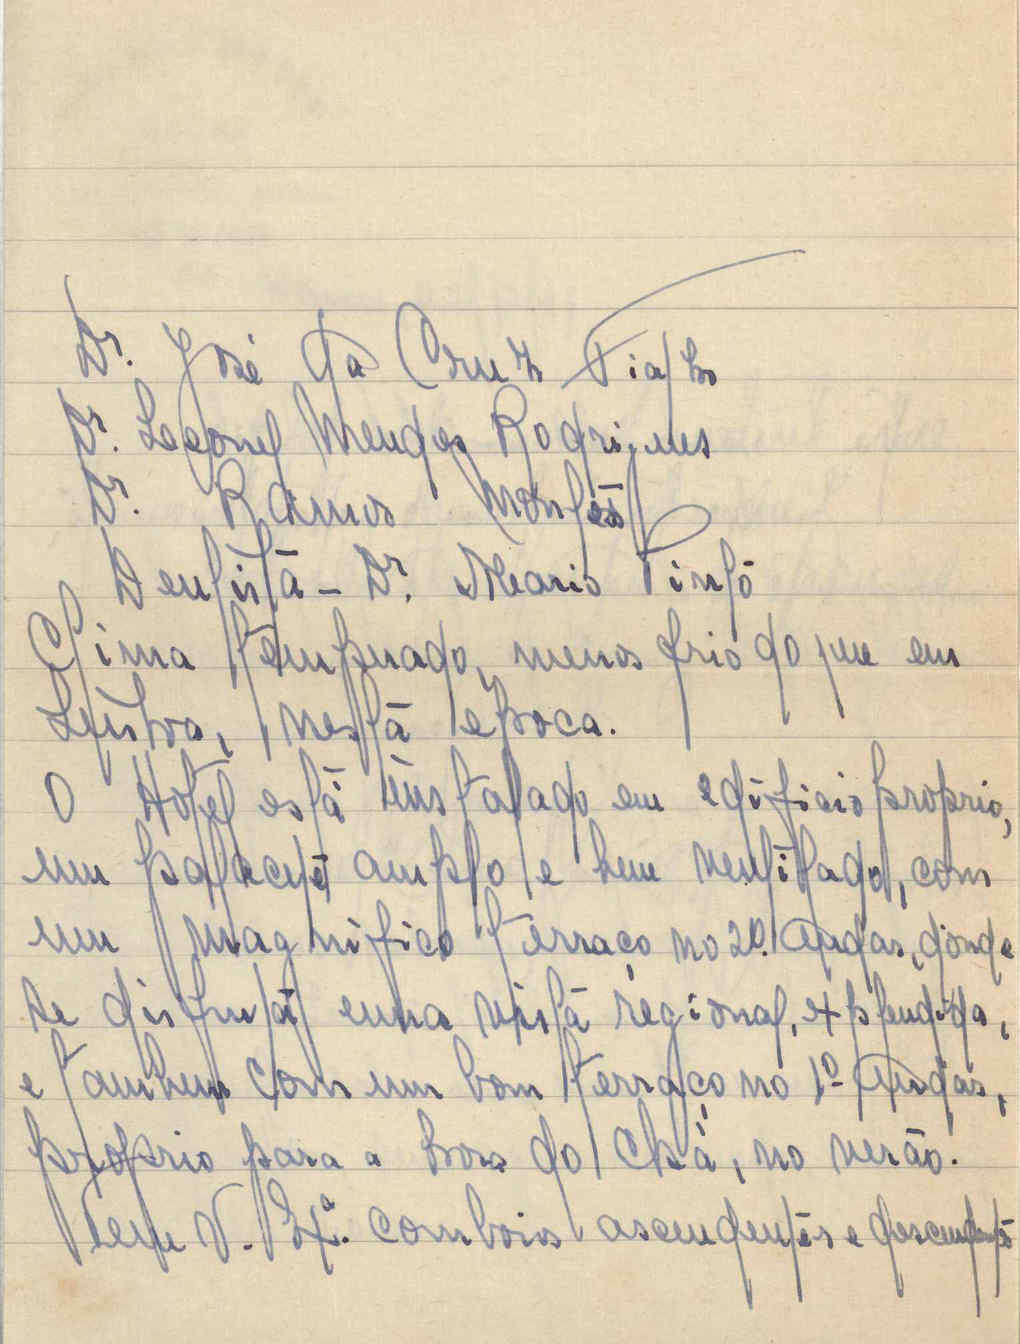 Dr. José da Cruz Tiago
Dr. Leonel Mendes Rodrigues
Dr. Ramos
Dentista - Dr. Mario Pinto
Clima temperado, menos frio do que em
Lisboa, nesta epoca.
O Hotel está instalado em edificio proprio,
um palacete amplo e bem ventilado, com
um magnifico terraço no 2º. Andar, donde
se disfruta uma vista regional, explendida,
e tambem com um bom terraço no 1º Andar,
proprio para a hora do Chá, no verão.
Tem V. Exª. comboios ascendentes e descendentes